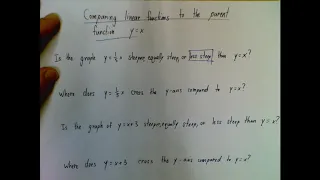 Comparing linear functions to the parent
function y=x
Is the graph y=½x steeper, equally steep, or less steep than y=x?
Where does y=½x cross the y-axis compared to y=x?
Is the graph of y=x+3 steeper, equally steep, or less steep than y=x?
Where does y=x+3 cross the y-axis compared to y=x?